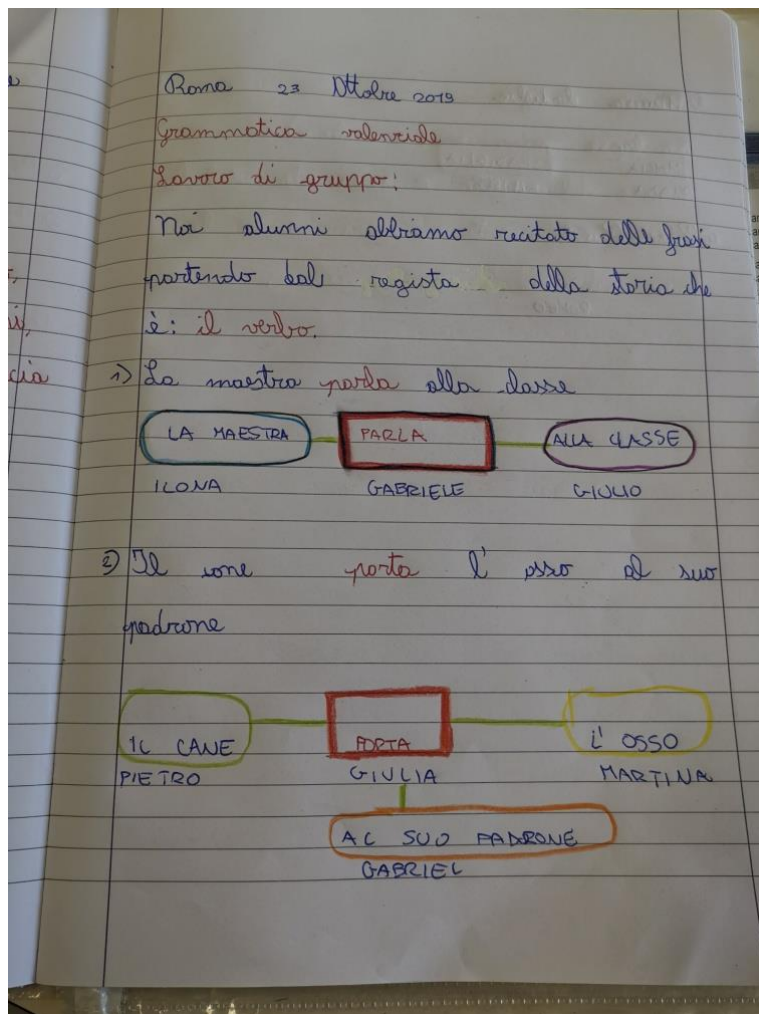 Roma 23 Ottobre 2019
Grammatica valenziale
Lavoro di gruppo:
Noi alunni abbiamo recitato delle frasi
partendo dal regista della storia che
è: il verbo.
1) La maestra parla alla classe
LA MAESTRA PARLA ALLA CLASSE
ILONA GABRIELE GIULIO
2) Il cane porta l' osso al suo
padrone
IL CANE PORTA L' OSSO
PIETRO GIULIA MARTINA
AL SUO PADRONE
GABRIEL
cia